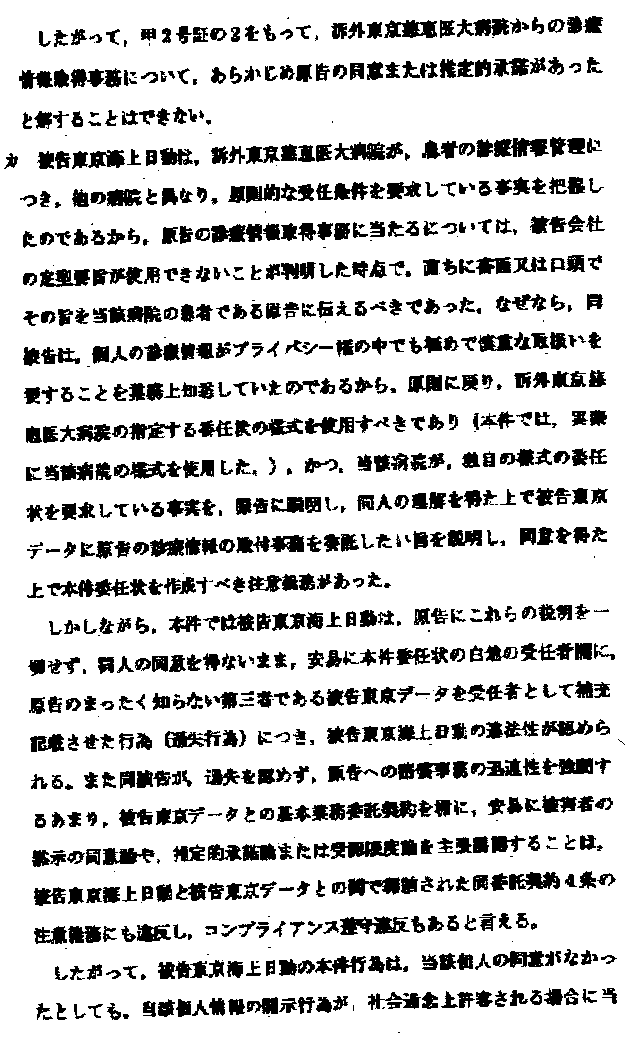 したがって，甲２号証の２をもって，訴外東京慈恵医大病院からの診療
情報取得事務について，あらかじめ原告の同意または推定的承諾があった
と解することはできない。
カ　被告東京海上日動は，訴外東京慈恵医大病院が，患者の診療情報管理に
つき，他の病院と異なり，原則的な受任条件を要求している事実を把握し
たのであるから，原告の診療情報取得事務に当たるについては，被告会社
の定型要旨が使用できないことが判明した時点で，直ちに書面又は口頭で
その旨を当該病院の患者である原告に伝えるべきであった。なぜなら，同
被告は，個人の診療情報がプライバシー権の中でも極めて慎重な取扱いを
要することを業務上知悉していたのであるから，原則に戻り，訴外東京慈
恵医大病院の指定する委任状の様式を使用すべきであり（本件では，実際
に当該病院の様式を使用した。），かつ，当該病院が，独自の様式の委任
状を要求している事実を，原告に説明し，同人の理解を得た上で被告東京
データに原告の診療情報の取付事務を委託したい旨を説明し，同意を得た
上で本件委任状を作成すべき注意義務があった。
しかしながら，本件では被告東京海上日動は，原告にこれらの説明を一
切せず，同人の同意を得ないまま，安易に本件委任状の白地の受任者欄に，
原告のまったく知らない第三者である被告東京データを受任者として補充
記載させた行為（過失行為）につき，被告東京海上日動の違法性が認めら
れる。また同被告が，過失を認めず，原告への賠償事務の迅速性を強調す
るあまり，被告東京データとの基本業務委託契約を楯に，安易に被害者の
黙示の同意論や，推定的承諾論または受忍限度論を主張展開することは，
被告東京海上日動と被告東京データとの間で締結された同委託契約４条の
注意義務にも違反し，コンプライアンス遵守違反もあると言える。
したがって，被告東京海上日動の本件行為は，当該個人の同意がなかっ
たとしても，当該個人情報の開示行為が，社会通念上許容される場合に当